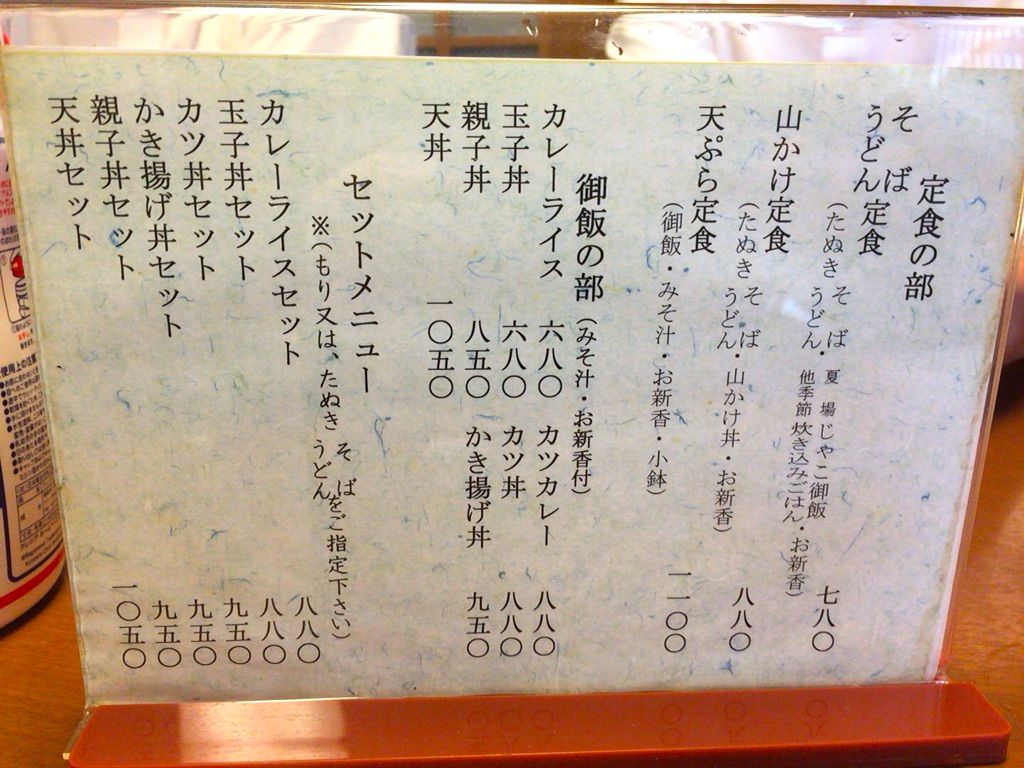 定食の部
そば
うどん 定食 七八〇
(たぬき そば うどん・夏場 じゃこ御飯 他季節 炊き込みごはん・お新香)
山かけ定食 八八〇
(たぬき そば うどん・山かけ丼・お新香)
天ぷら定食 一一〇〇
(御飯・みそ汁・お新香・小鉢)
御飯の部 (みそ汁・お新香付)
カレーライス 六八〇 カツカレー 八八〇
玉子丼 六八〇 カツ丼 八八〇
親子丼 八五〇 かき揚げ丼 九五〇
天丼 一〇五〇
セットメニュー
※(もり又は、たぬき そば うどん をご指定下さい)
カレーライスセット 八八〇
玉子丼セット 八八〇
カツ丼セット 九五〇
かき揚げ丼セット 九五〇
親子丼セット 九五〇
天丼セット 一〇五〇
使用上の注意